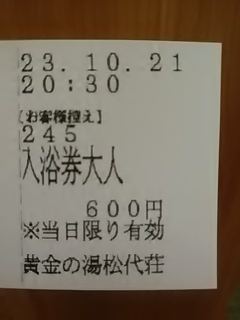 23.10.21
20:30
[お客様控え]
245
入浴券大人
600円
※当日限り有効
黄金の湯松代荘